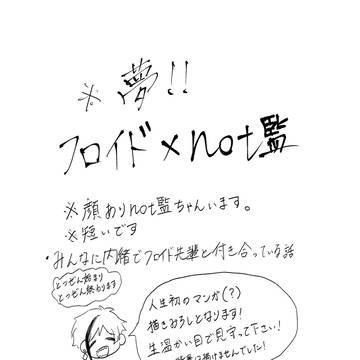 ※夢!!
フロイド×not監
※顔ありnot監ちゃんいます。
※短いです
・みんなに内緒でフロイド先輩と付き合っている話
とつぜん始まり
とつぜん終わります
人生初のマンガ(?)
描きおろしとなります!
生温かい目で見守って下さい!
描けませんでした!